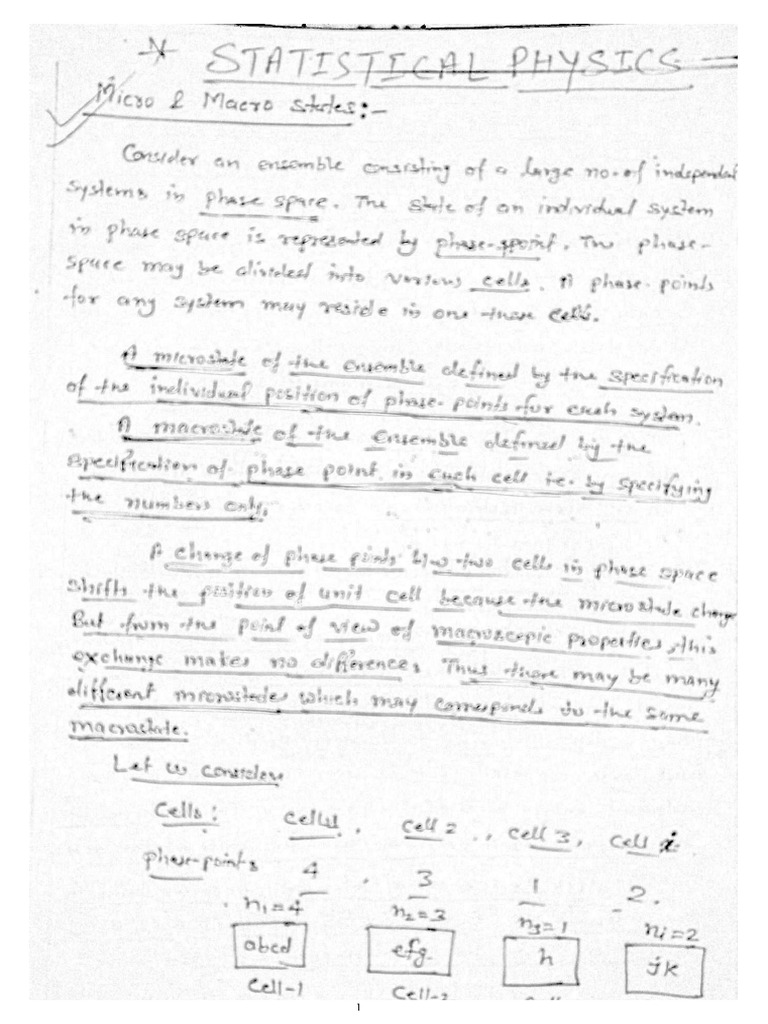 STATISTICAL PHYSICS
Micro & Macro states:-
Consider an ensemble consisting of a large no. of independent
systems in phase space. The state of an individual system
in phase space is represented by phase-spoint. The phase-
space may be divided into various cells. A phase-points
for any system may reside in one these cells.
A microstate of the ensemble defined by the specification
of the individual position of phase-points for each system.
A macrostate of the ensemble defined by the
specification of phase point in each cell i.e. by specifying
the numbers only.
A change of phase points b/w two cells in phase space
shifts the position of unit cell because the microstate change
But from the point of view of macroscopic properties, this
exchange makes no difference. Thus there may be many
different microstates which may corresponds to the same
macrostate.
Let us consider
Cells: Cells1, Cell 2, Cell 3, Cell i
phase-points 4 . 3 1 2.
n₁=4 n₂=3 n₃=1 ni=2
abcd efg. h jk
Cell-1 Cell-2
1